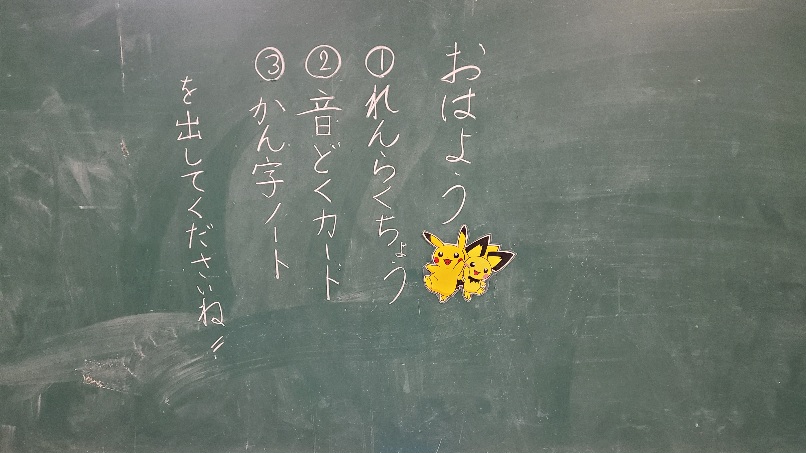 おはよう
①れんらくちょう
②音どくカード
③かん字ノート
を出してくださいね!!